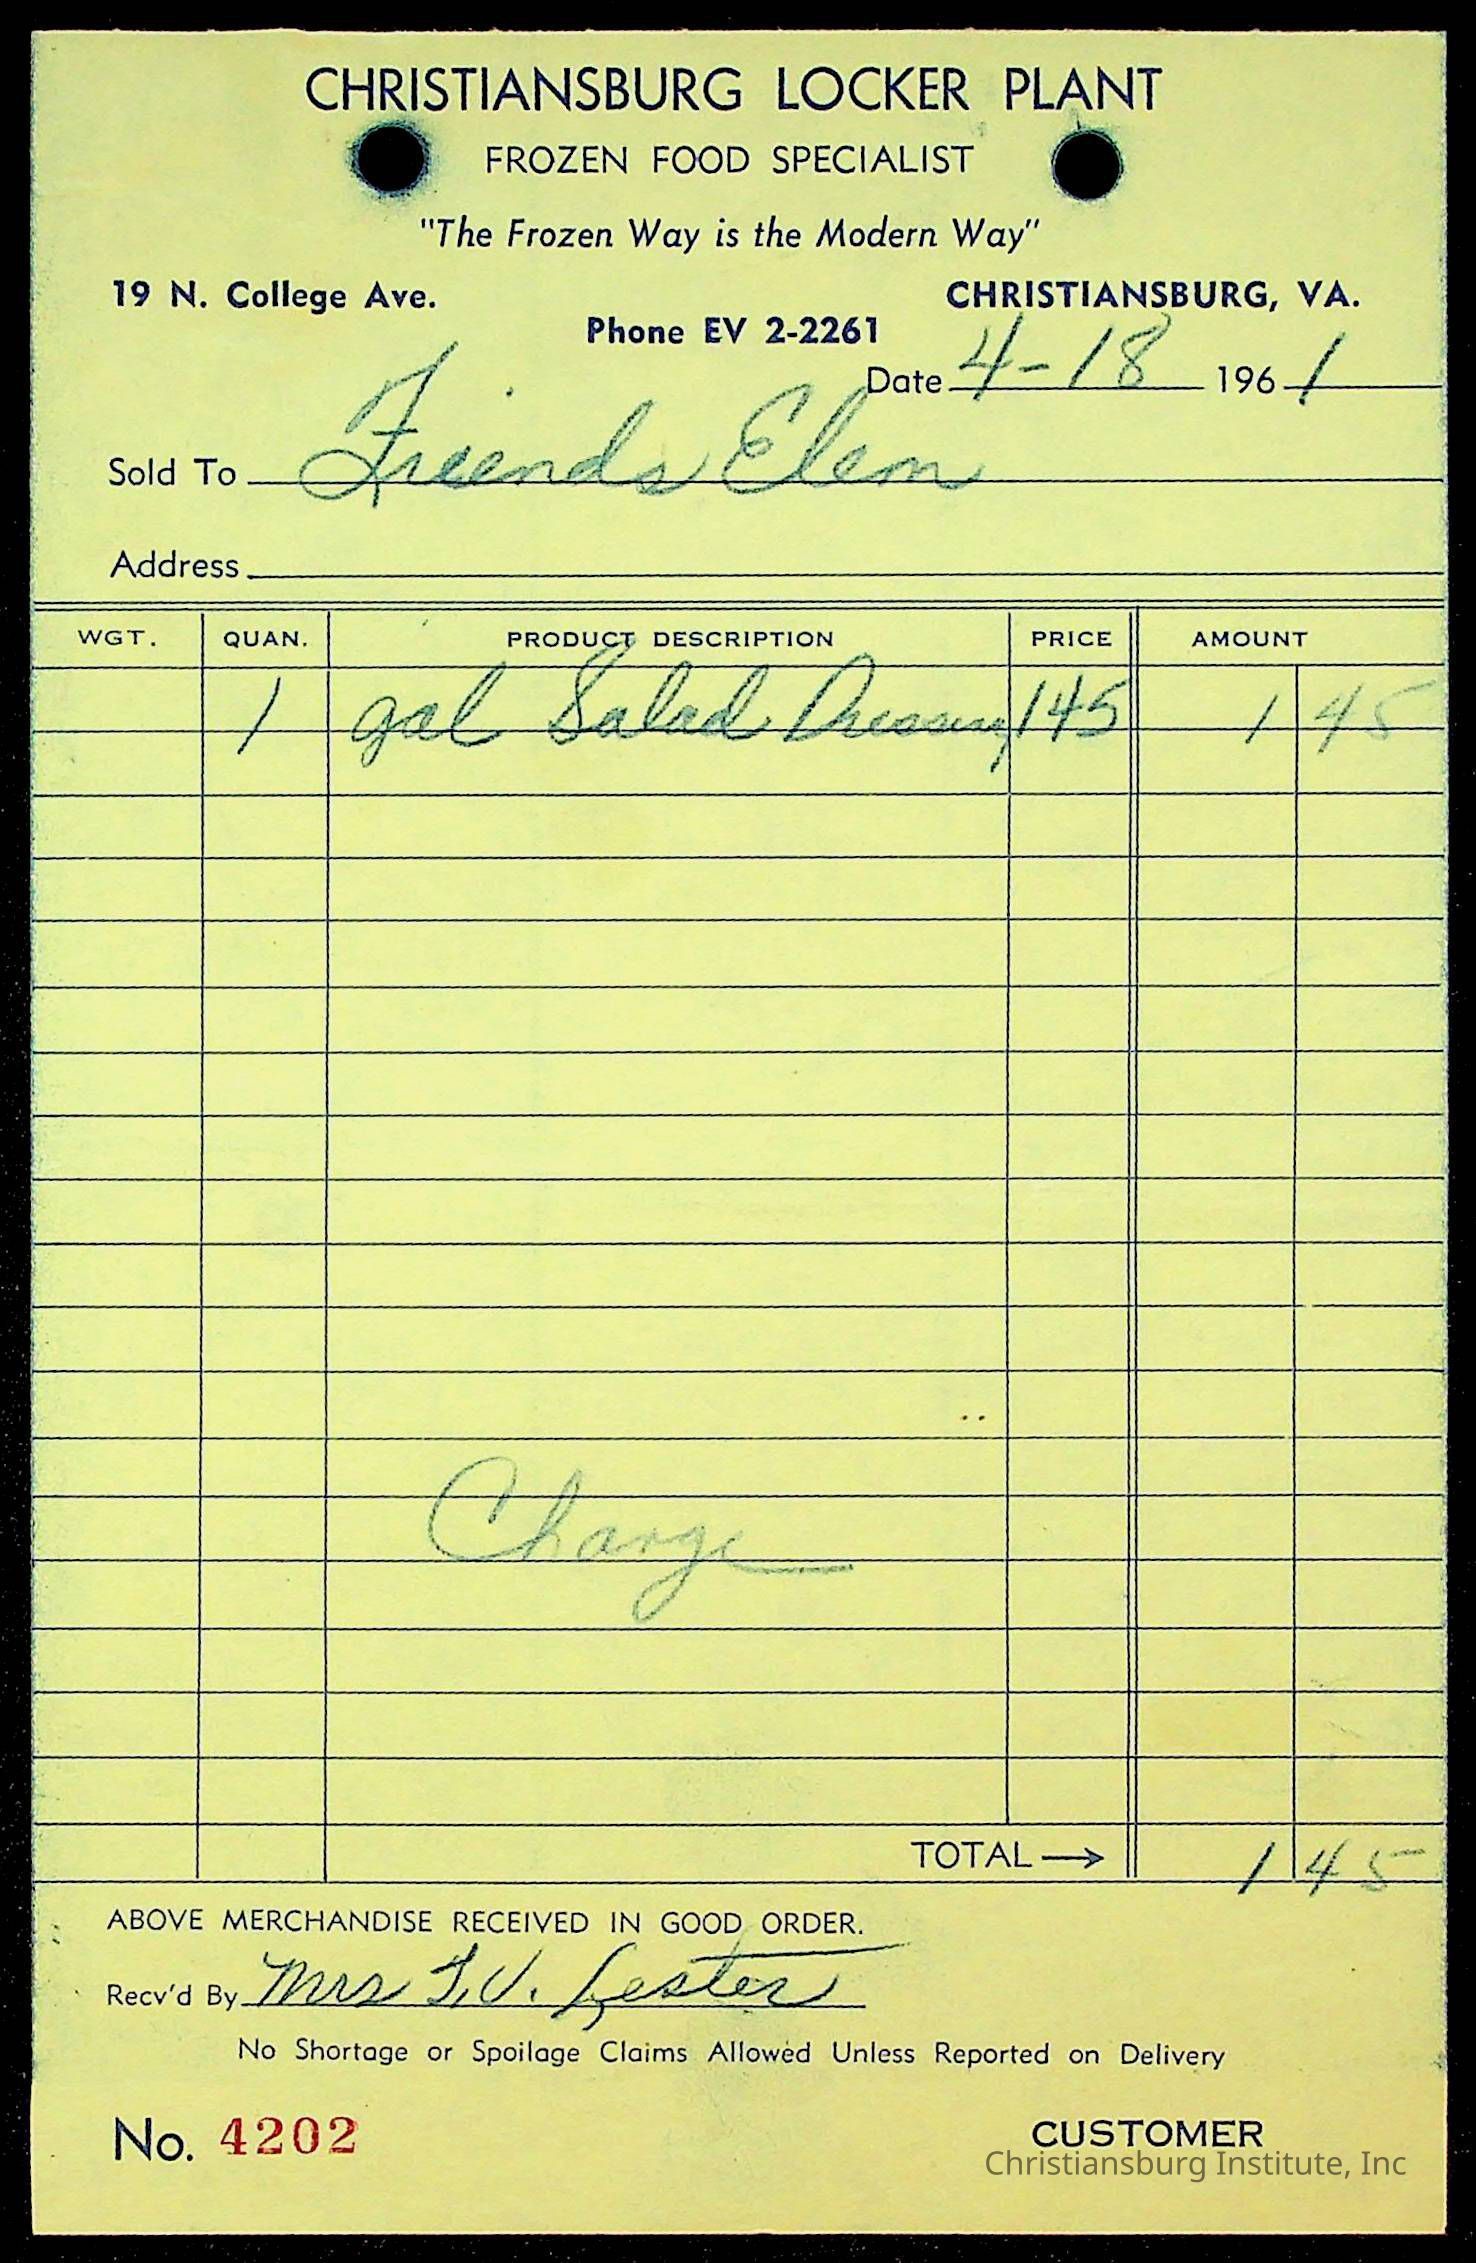 CHRISTIANSBURG LOCKER PLANT
FROZEN FOOD SPECIALIST
"The Frozen Way is the Modern Way"
19 N. College Ave. CHRISTIANSBURG, VA.
Phone EV 2-2261
Date 4-18 1961
Sold To Friends Elem
Address
WGT. QUAN. PRODUCT DESCRIPTION PRICE AMOUNT
1 gal Salad Dressing 145 1 45
Charge
TOTAL → 1 45
ABOVE MERCHANDISE RECEIVED IN GOOD ORDER.
Recv'd By Mrs T.V. Lester
No Shortage or Spoilage Claims Allowed Unless Reported on Delivery
No. 4202 CUSTOMER
Christiansburg Institute, Inc